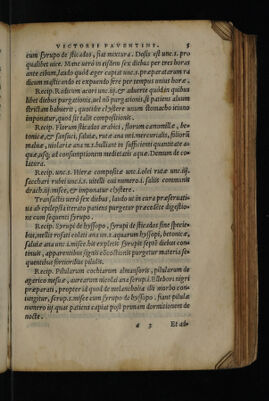 VICTORII FAVENTINI. 5
cum syrupo de sticados, fiat mixtura. Dosis est unc.s. pro
qualibet vice. Mane verò in eisdem sex diebus per tres horas
ante cibum, laudo quòd æger capiat unc.s. præparatorum ra
dicum masticando et expuendo ferè per tempus unius horæ.
Recip. Radicum acori unc.iij. & aduerte quòd in quibus
libet diebus purgationis, uel nõ purgationis, si patiens aluum
strictam habuerit, quotidie et ieiuno stomacho
imponatur, quod sit talis compositionis.
Recip. Florum sticados arabici, florum camomillæ, be-
tonicæ, & sansuci, saluiæ, rutæ ana
maluæ, uiolariæ ana m.s. bulliant in sufficienti quantitate a-
quæ, usq; ad consumptionem medietatis aquæ. Demum de co-
latura.
Recip. unc.s. Hieræ compositæ unc.i. olei rutæ unc.iij.
sacchari rubei unc.s. uitelli oui numero.i. salis communis
drach.iij. misce, & imponatur clystere.
Transactis uerò sex diebus, laudo ut in hora præseruatio-
nis ab epilepsia iterato patiens purgetur præcedente digestio-
ne cum sequenti syrupo.
Recip. Syrupi de hyssopo, syrupi de sticados sine specie-
bus, mellis rosati colati ana unc.s. aquarum hyssopi, betonicæ,
saluiæ ana unc.i. misce. his expletis syrupis septem diebus con-
tinuis, apparentibus signis concoctionis purgetur materia se-
quentibus fortioribus pilulis.
Recip. Pilularum cochiarum almansoris, pilularum de
agarico mesuæ, aureæ nicolai ana scrup.i. Ellebori nigri
præparati, propter id quod de melancholia illi morbo con-
iungitur, scrup.s. misce cum syrupo de hyssopo, fiant pilulæ
numero vij. quas patiens capiat post primam dormitionem de
nocte.
a 3 Et ad-